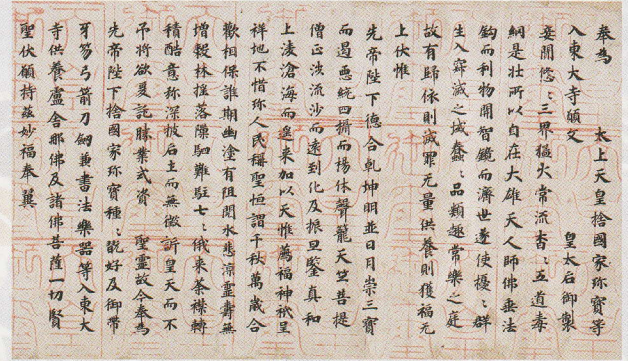 奉為　太上天皇捨國家珍寶等
入東大寺願文　皇太后御製
妾聞悠々三界猛火常流杳々五道毒
網是壯所以自在大雄天人師佛垂法
鈎而利物開智鏡而濟世遂使擾々群
生入寂滅之域蠢々品類趣常樂之庭
故有歸依則滅罪无量供養則獲福无
上伏惟
先帝陛下德合乾坤明並日月崇三寶
而遏惡統四攝而揚休聲籠天竺菩提
僧正渉流沙而遠到化及振旦鑒真和
上凌滄海而遥來加以天惟薦福神祇呈
祥地不惜珍人民稱聖恒謂千秋萬歳合
歡相保誰期幽塗有阻閲水悲凉靈壽無
増穀林揺落隟駟難駐七々俄來荼襟轉
積酷意弥深披后土而無徴訴皇天而不
弔將欲爰託勝業式資　聖靈故今奉為
先帝陛下捨國家珍寶種々翫好及御帶
牙笏弓箭刀劔兼書法樂器等入東大
寺供養盧舍那佛及諸佛菩薩一切賢
聖伏願持茲妙福奉翼